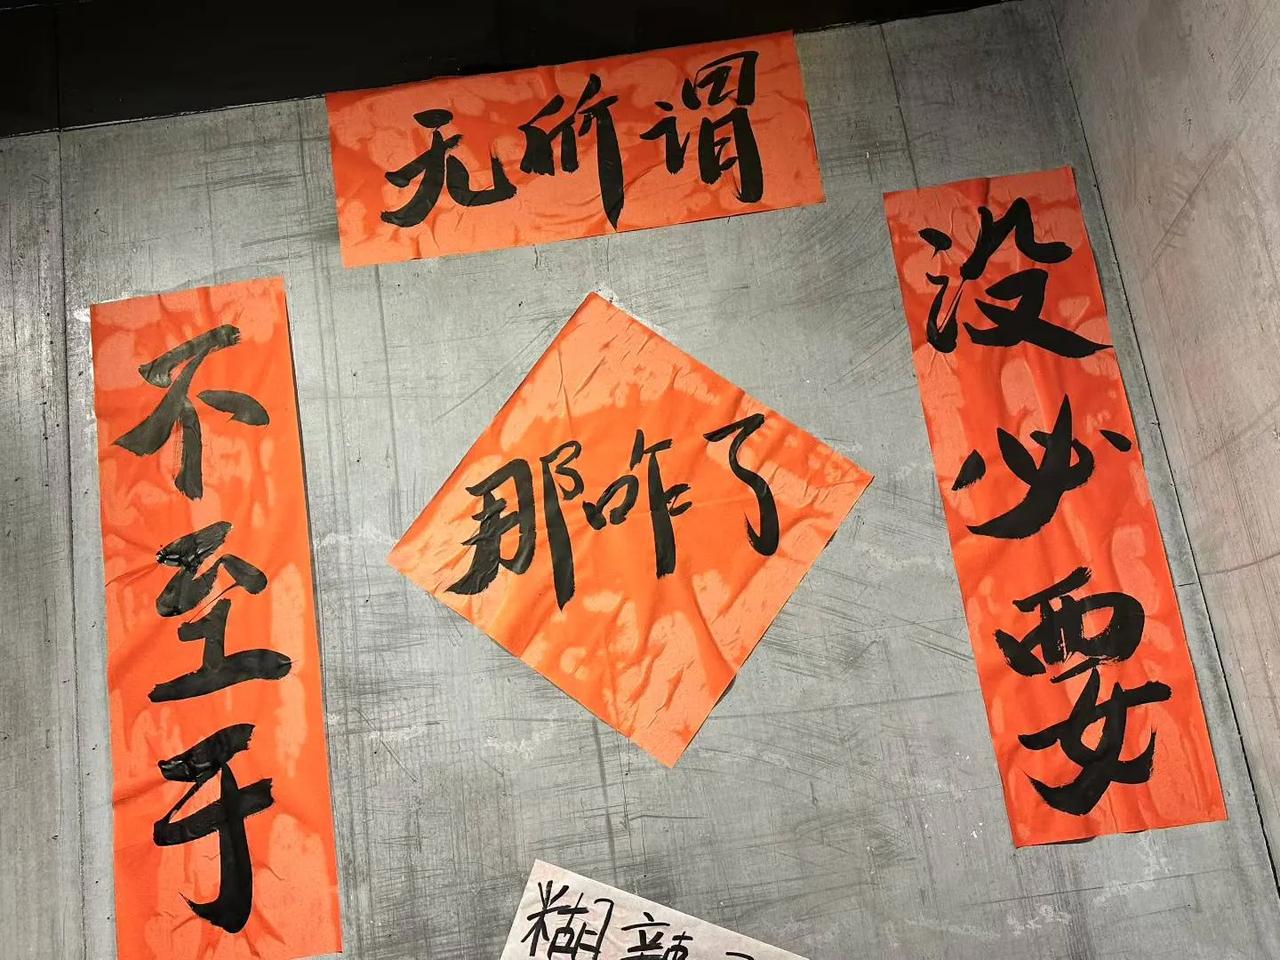 无所谓
没必要
不至于
那咋了
糊辣